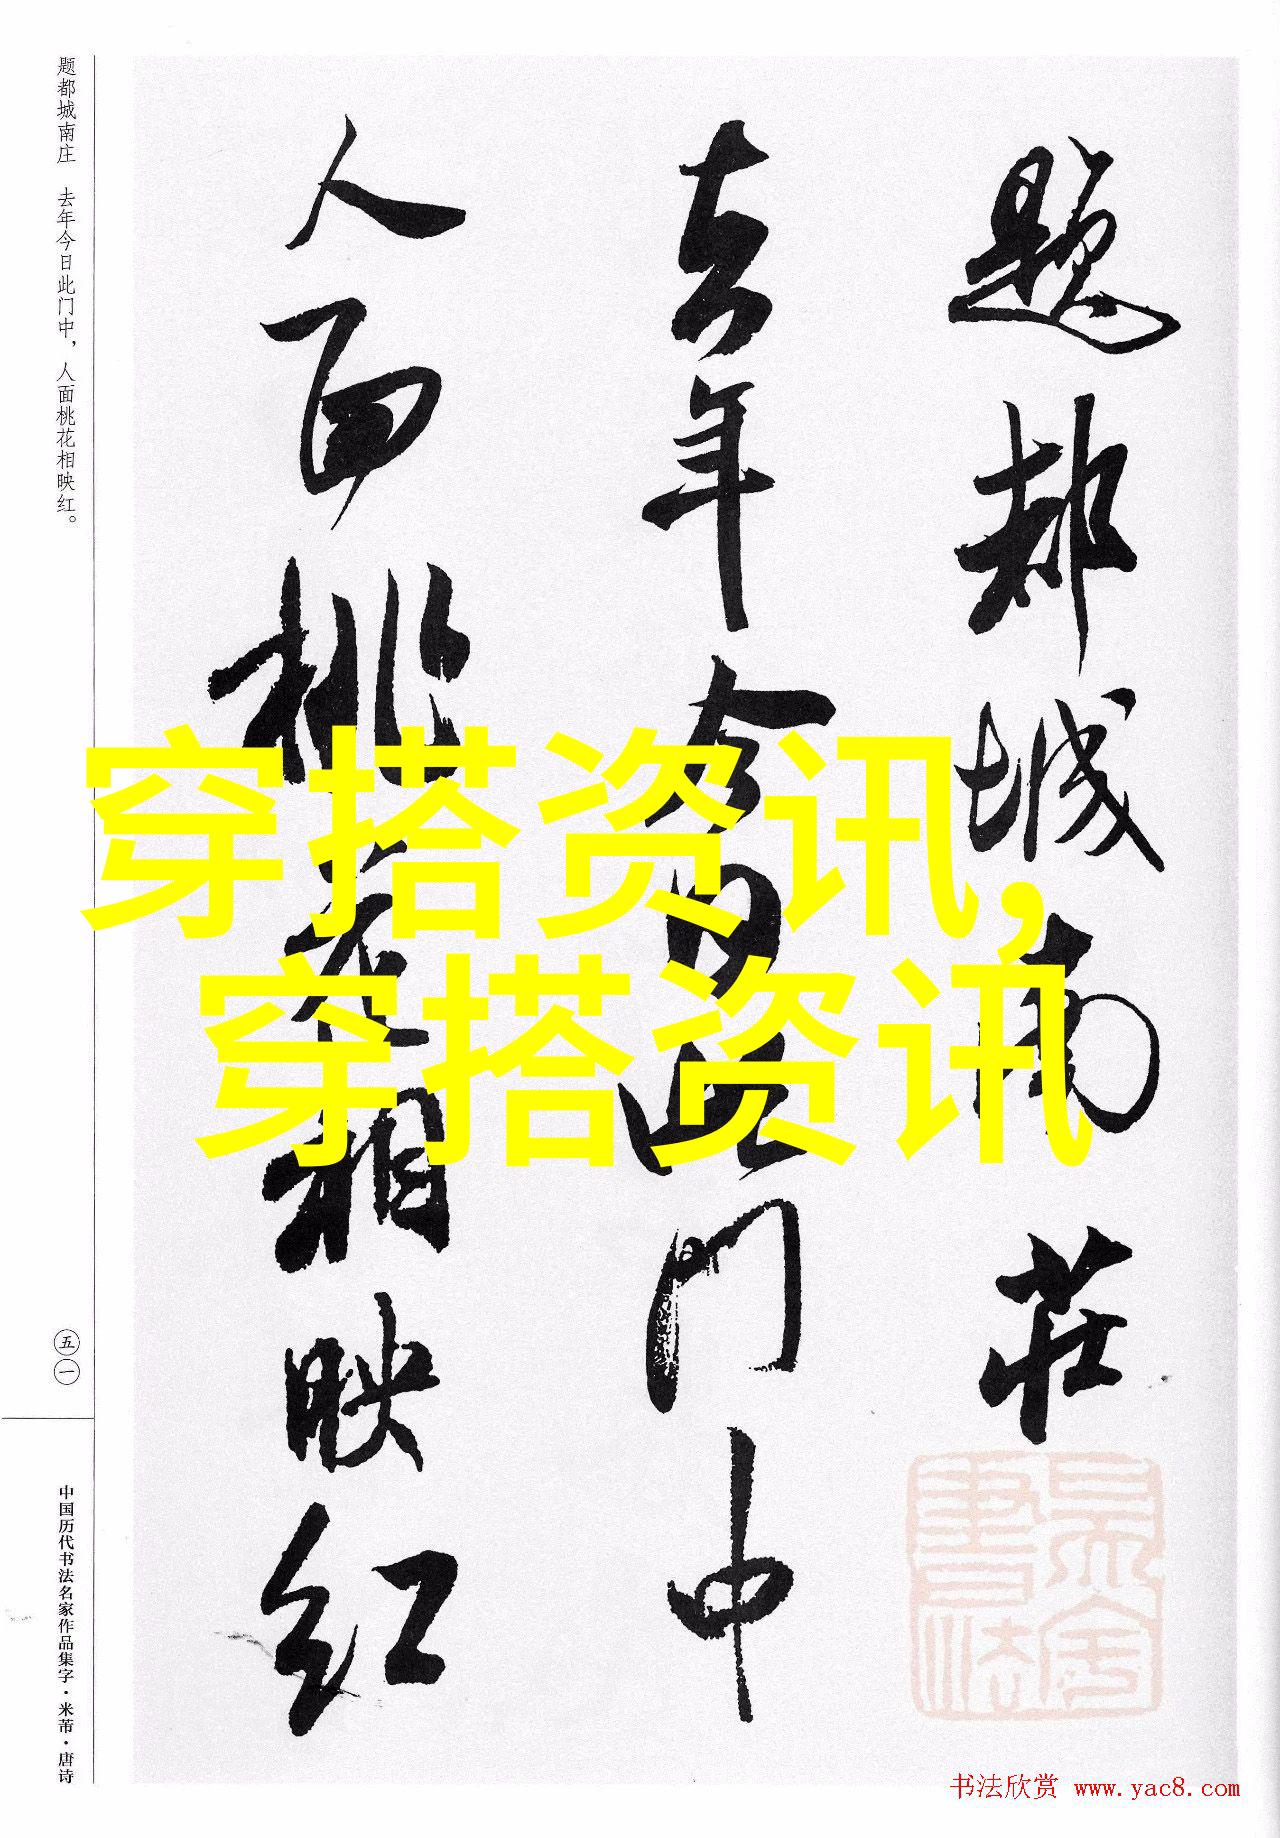 题都城南庄　去年今日此门中，人面桃花相映红。
題都城南莊
去年今日此门中
人面桃花相映红
穿搭资讯，
穿搭资讯
五一
中国历代书法名家作品集字·米芾·唐诗
书法欣赏 www.yac8.com